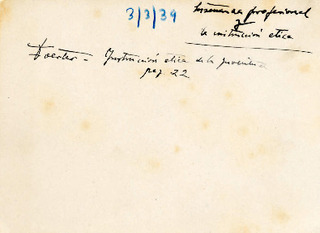 3/3/39
Enseñanza profesional
y
la instrucción etica
Foester - Instrucción etica de la juventud
pag. 22